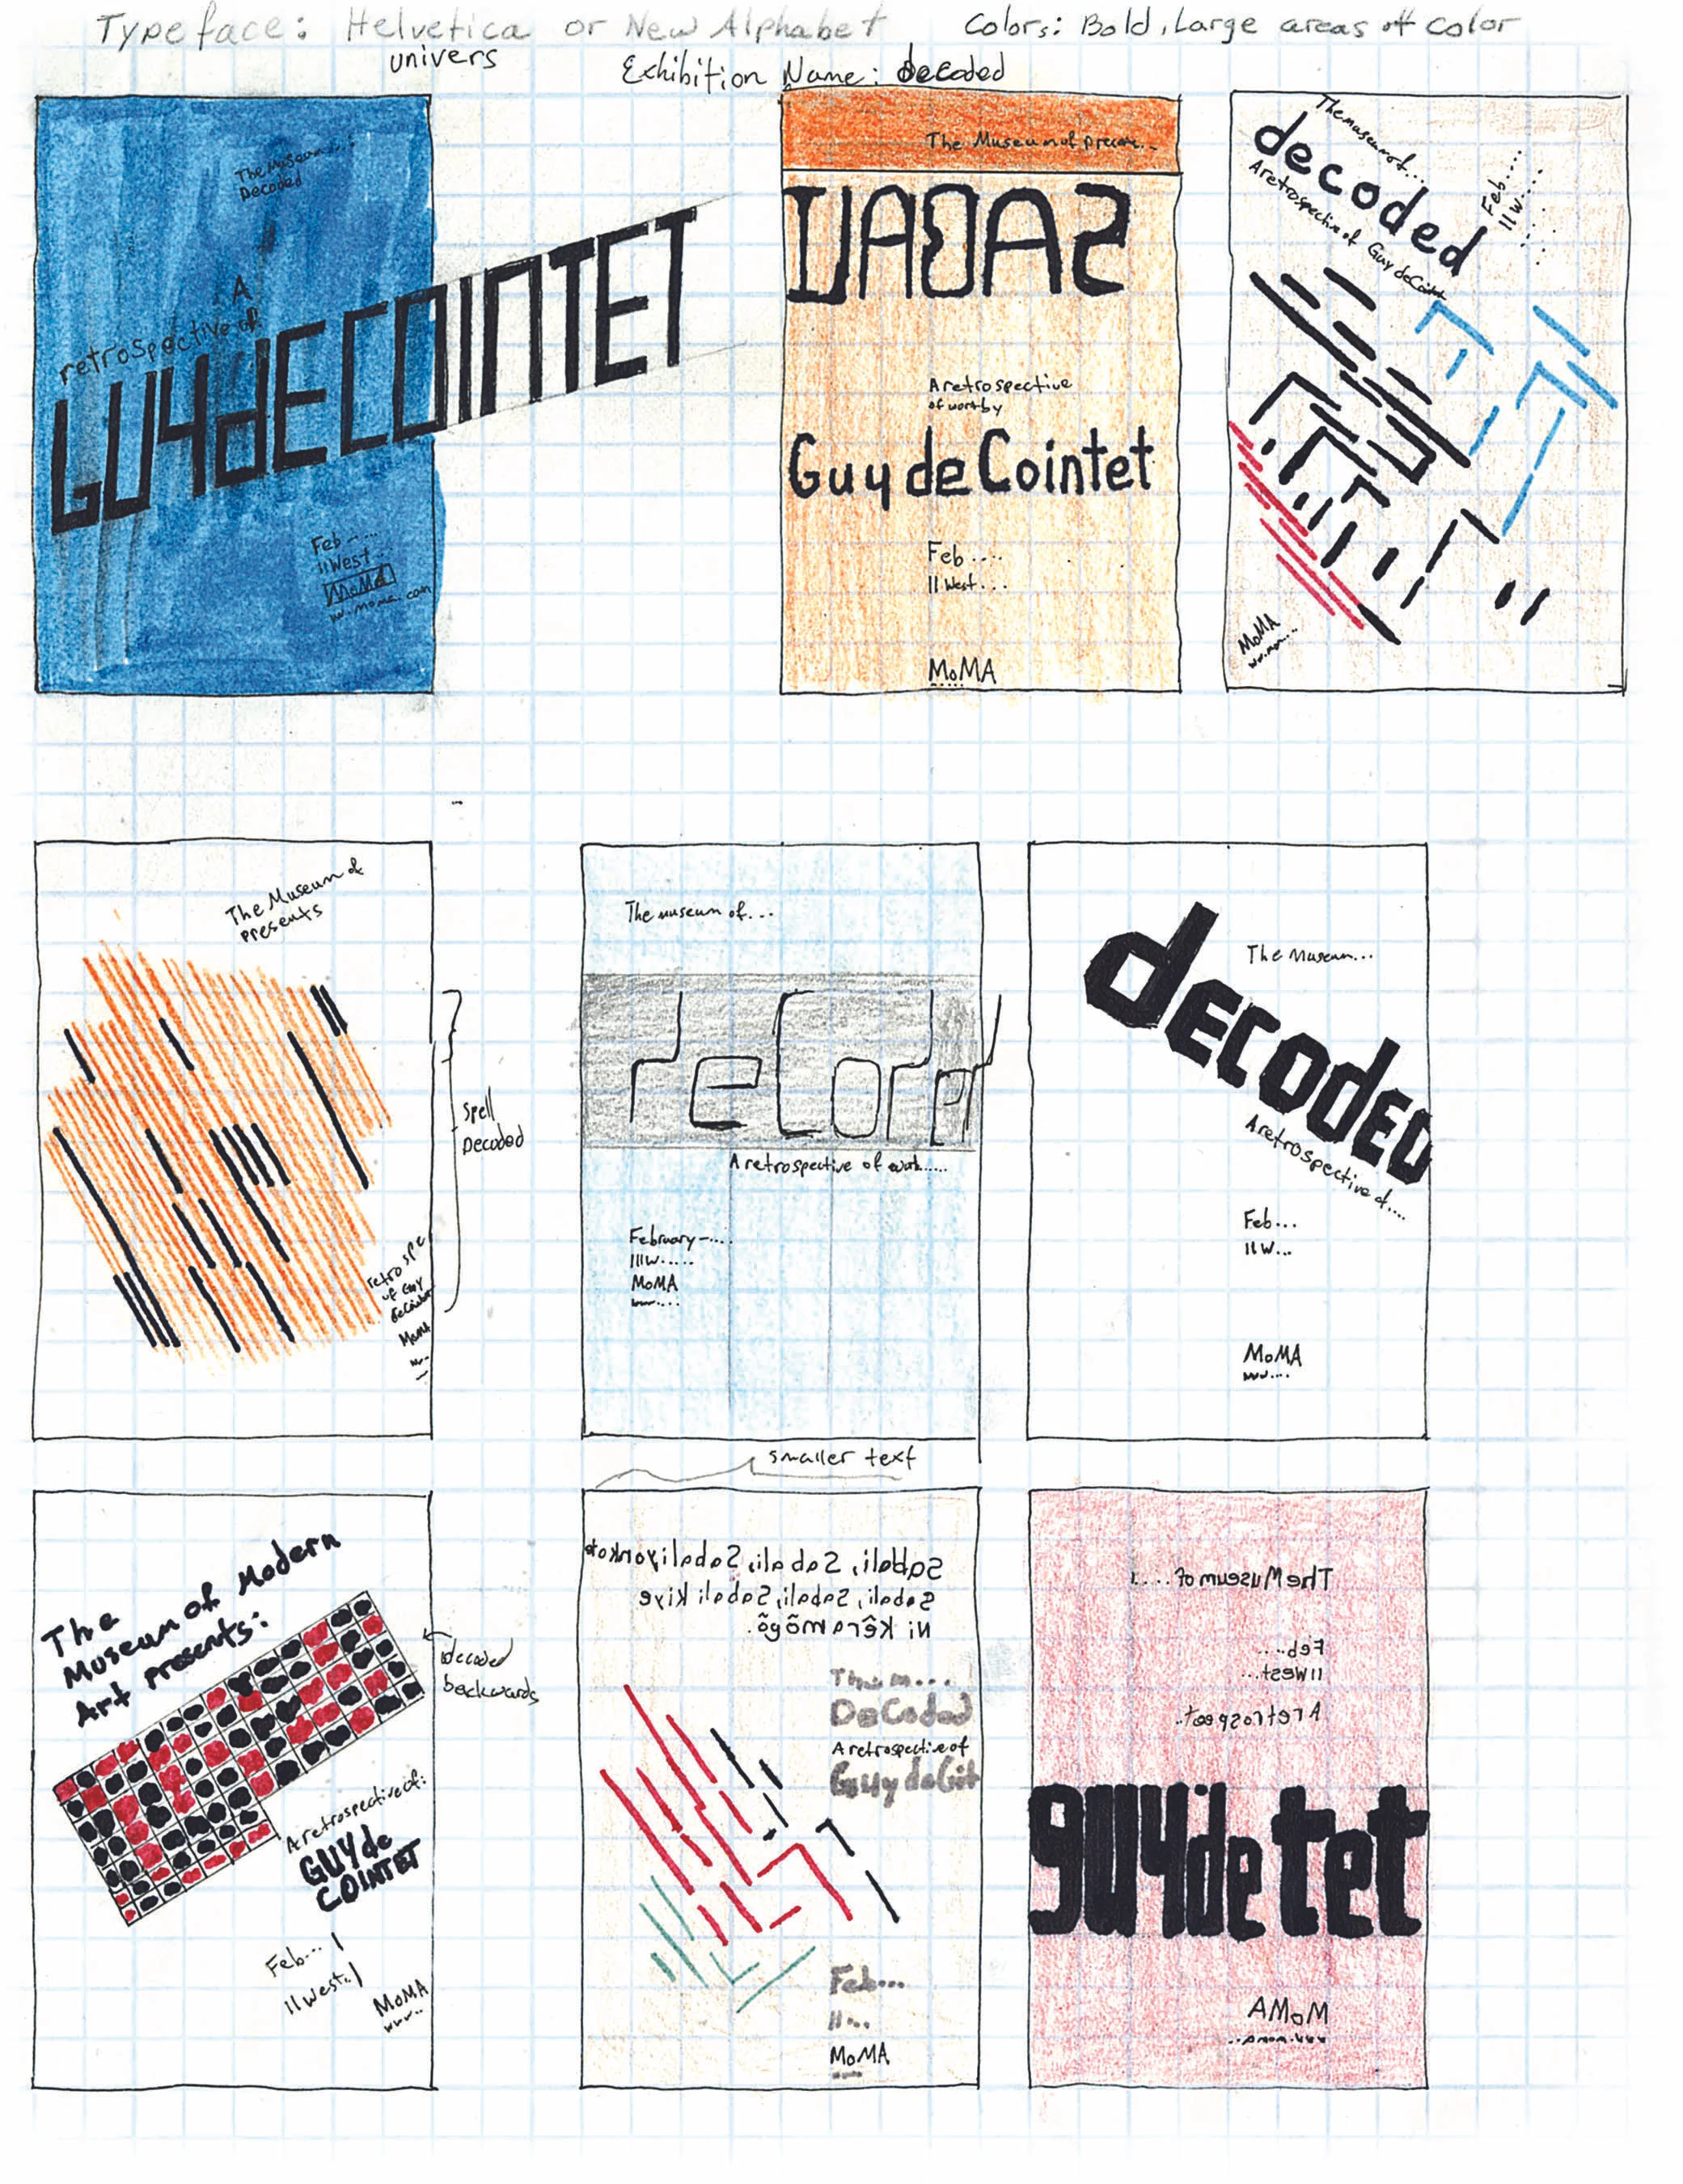 Typeface: Helvetica or New Alphabet
univers
Colors: Bold, Large areas of color
Exhibition Name: decoded
The Museum...
Decoded
A
retrospective of
GUYdECOINTET
Feb....
11 West...
MoMA
ww.moma.com
The Museum of presen...
A retrospective
of work by
Guy de Cointet
Feb....
11 West...
MoMA
The museum of...
decoded
A retrospective of Guy de Cointet
Feb....
11 W....
MoMA
The Museum of
presents
spell
Decoded
retrospe
of Guy
MoMA
The museum of...
A retrospective of work.....
February-....
111W.....
MoMA
The Museum...
decoded
A retrospective of....
Feb...
11 W...
MoMA
www....
The
Museum of Modern
Art presents:
decoded
backwards
A retrospective of:
GUY de
COINTET
Feb...
11 West..
MoMA
www..
smaller text
Sabali, Sabali, Sabali yonkote
Sabali, Sabali, Sabali Kiye
Ni kêra môgô.
The m...
DeCoded
A retrospective of
Guy de Coit
Feb...
11...
MoMA
The Museum of....
Feb....
11 West...
A retrospect..
guydetet
MoMA